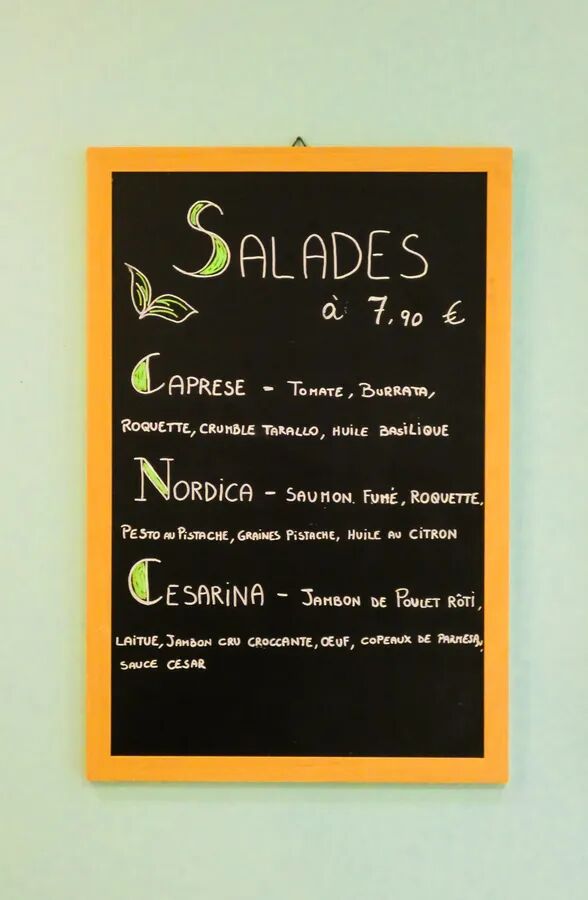 SALADES
à 7,90 €
CAPRESE - TOMATE, BURRATA,
ROQUETTE, CRUMBLE TARALLO, HUILE BASILIQUE
NORDICA - SAUMON FUMÉ, ROQUETTE,
PESTO AU PISTACHE, GRAINES PISTACHE, HUILE AU CITRON
CESARINA - JAMBON DE POULET RÔTI,
LAITUE, JAMBON CRU CROCCANTE, ŒUF, COPEAUX DE PARMESAN,
SAUCE CESAR